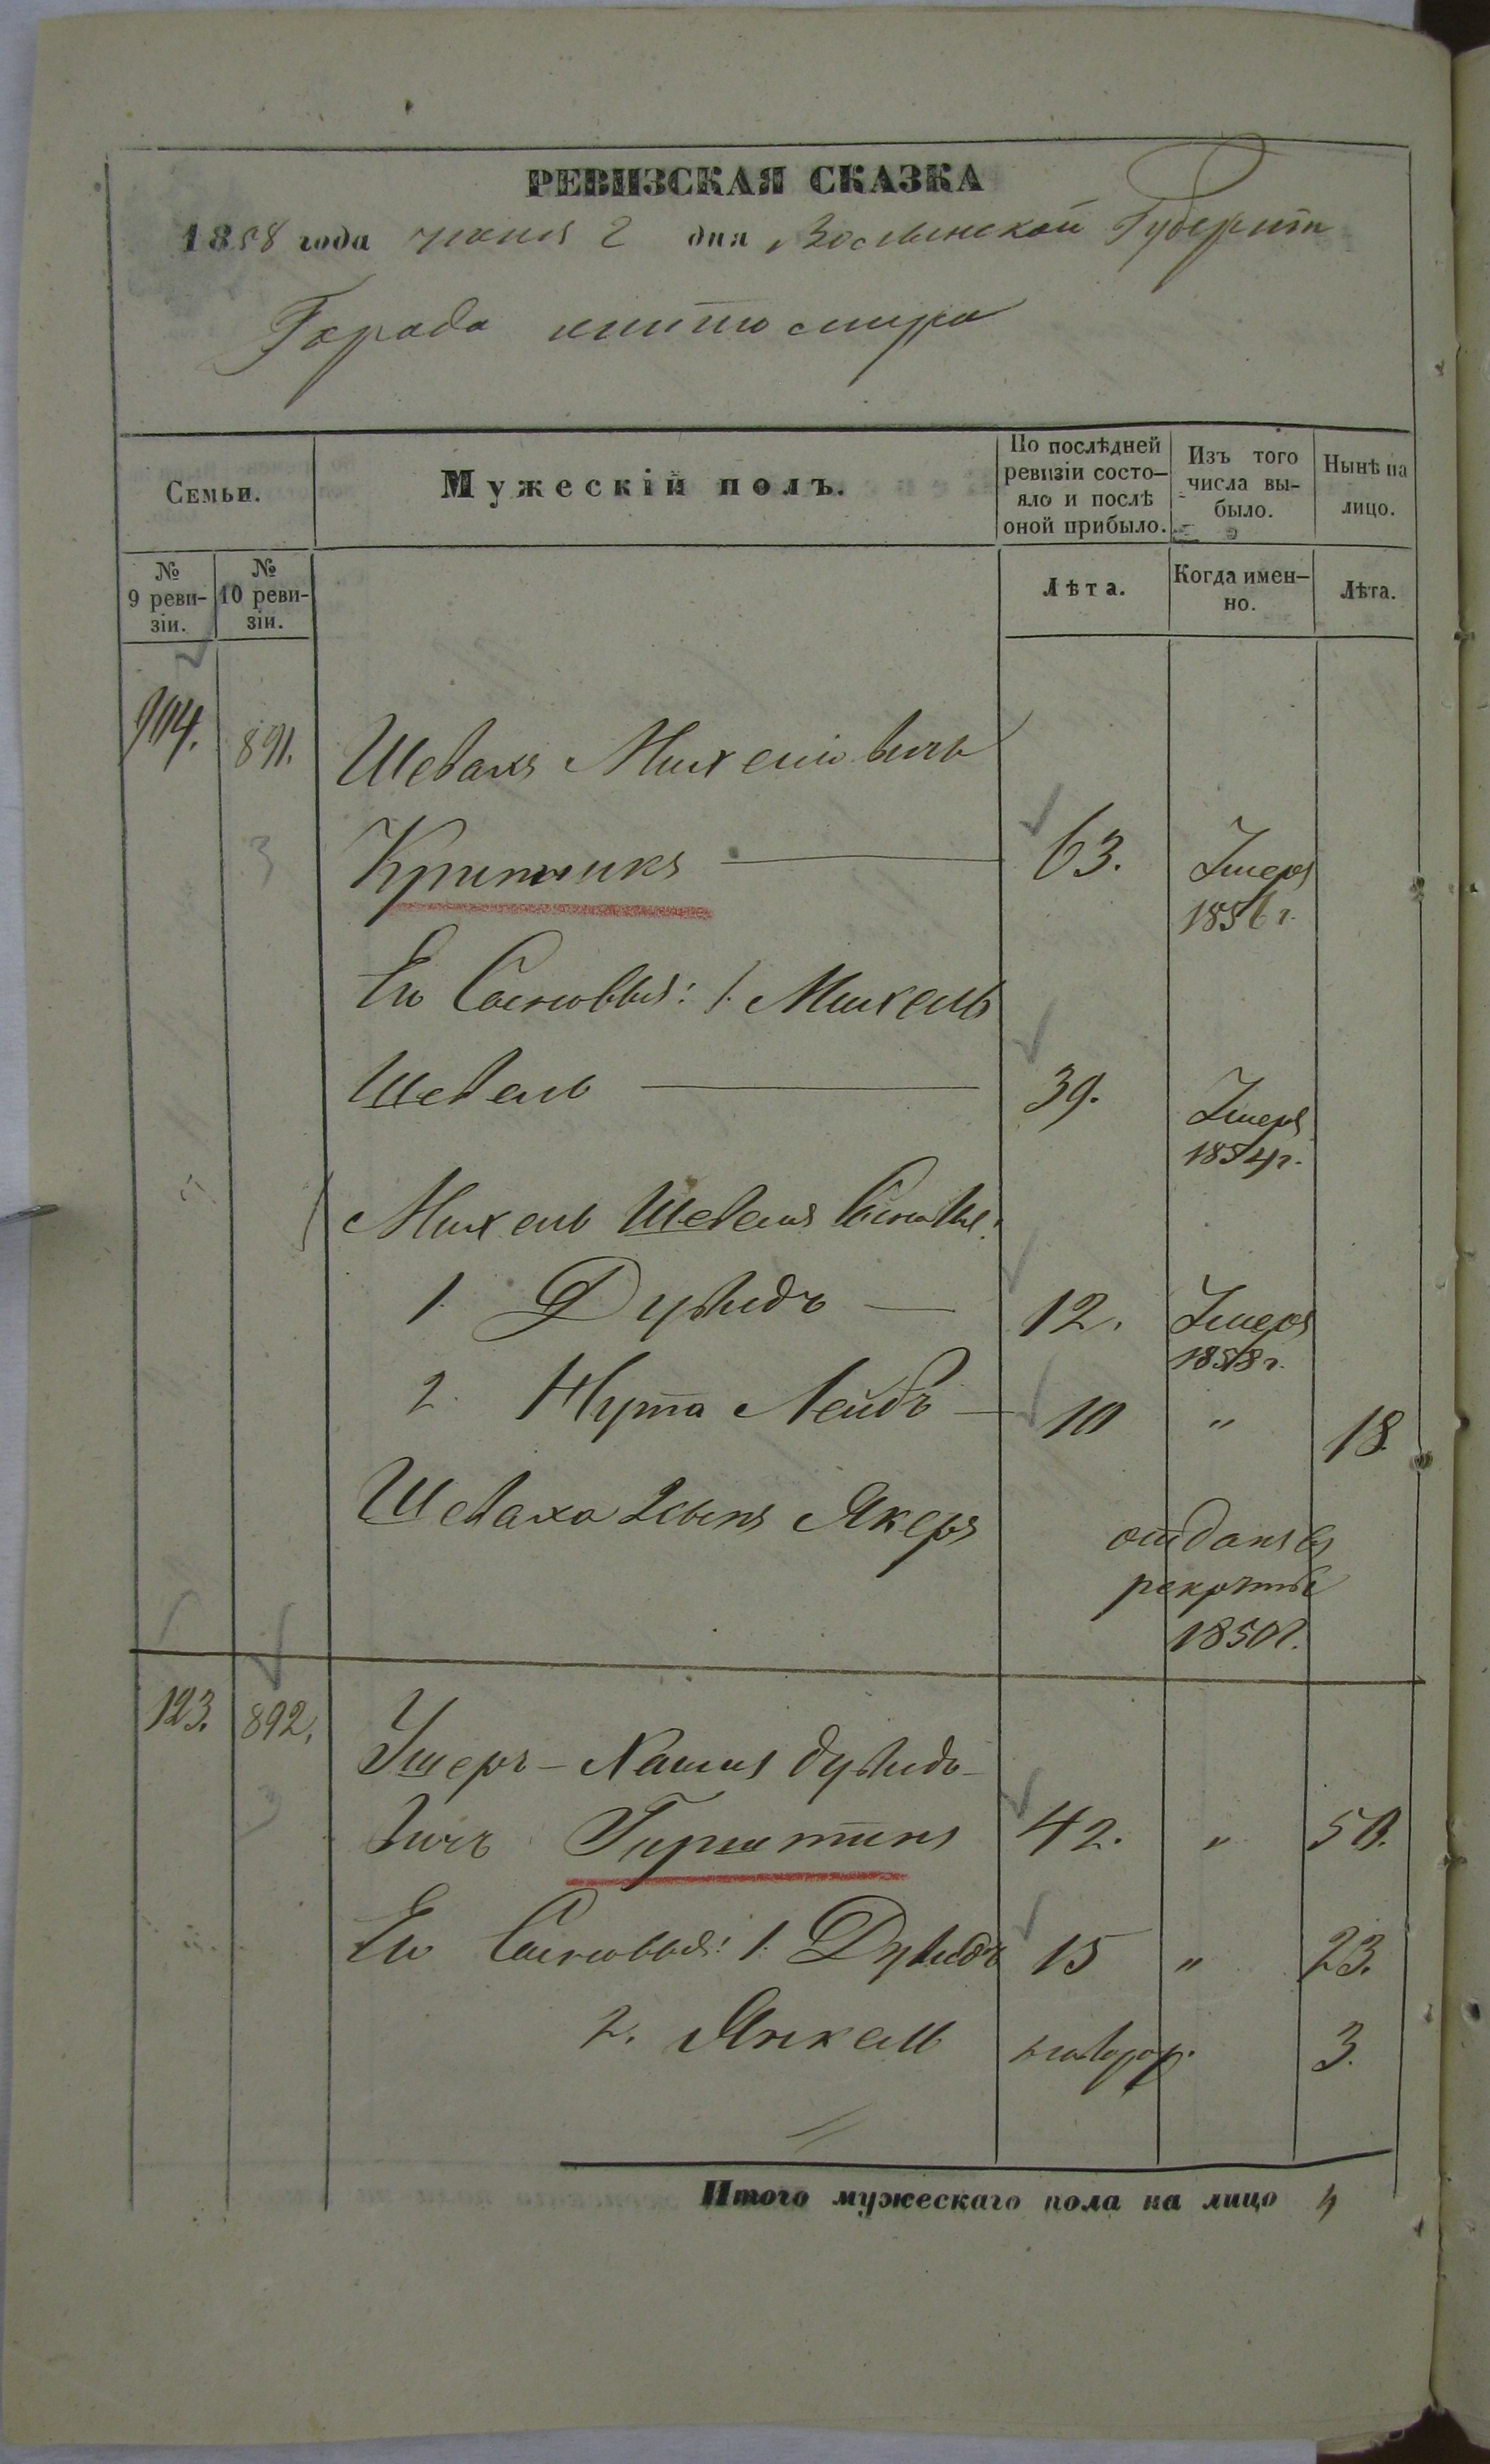 РЕВИЗСКАЯ СКАЗКА
1858 года июня 2 дня Волынской Губерніи
Города Житомира
Семьи.
Мужескій полъ.
По послѣдней ревизіи состо-
яло и послѣ
оной прибыло.
Изъ того
числа вы-
было.
Нынѣ на
лицо.
№
9 реви-
зіи.
№
10 реви-
зіи.
Лѣта.
Когда имен-
но.
Лѣта.
891. Шевахъ Михелiовичъ
Критникъ 63. Умеръ
1856 г.
Его Сыновья: 1. Михель
Шевель 39. Умеръ
1854 г.
Михель Шевеля Сыновья:
1. Дувидъ 12. Умеръ
1858 г.
2. Нута Лейбъ 10 " 18.
Шеваха 2 сынъ Якеръ отданъ въ
рекруты
1850 г.
123. 892. Ушеръ-Хаимъ Дувидо-
вичъ Гирштинъ 42. " 50.
Его Сыновья: 1. Дувидъ 15 " 23.
2. Янкель новорож. 3.
Итого мужескаго пола на лицо 4